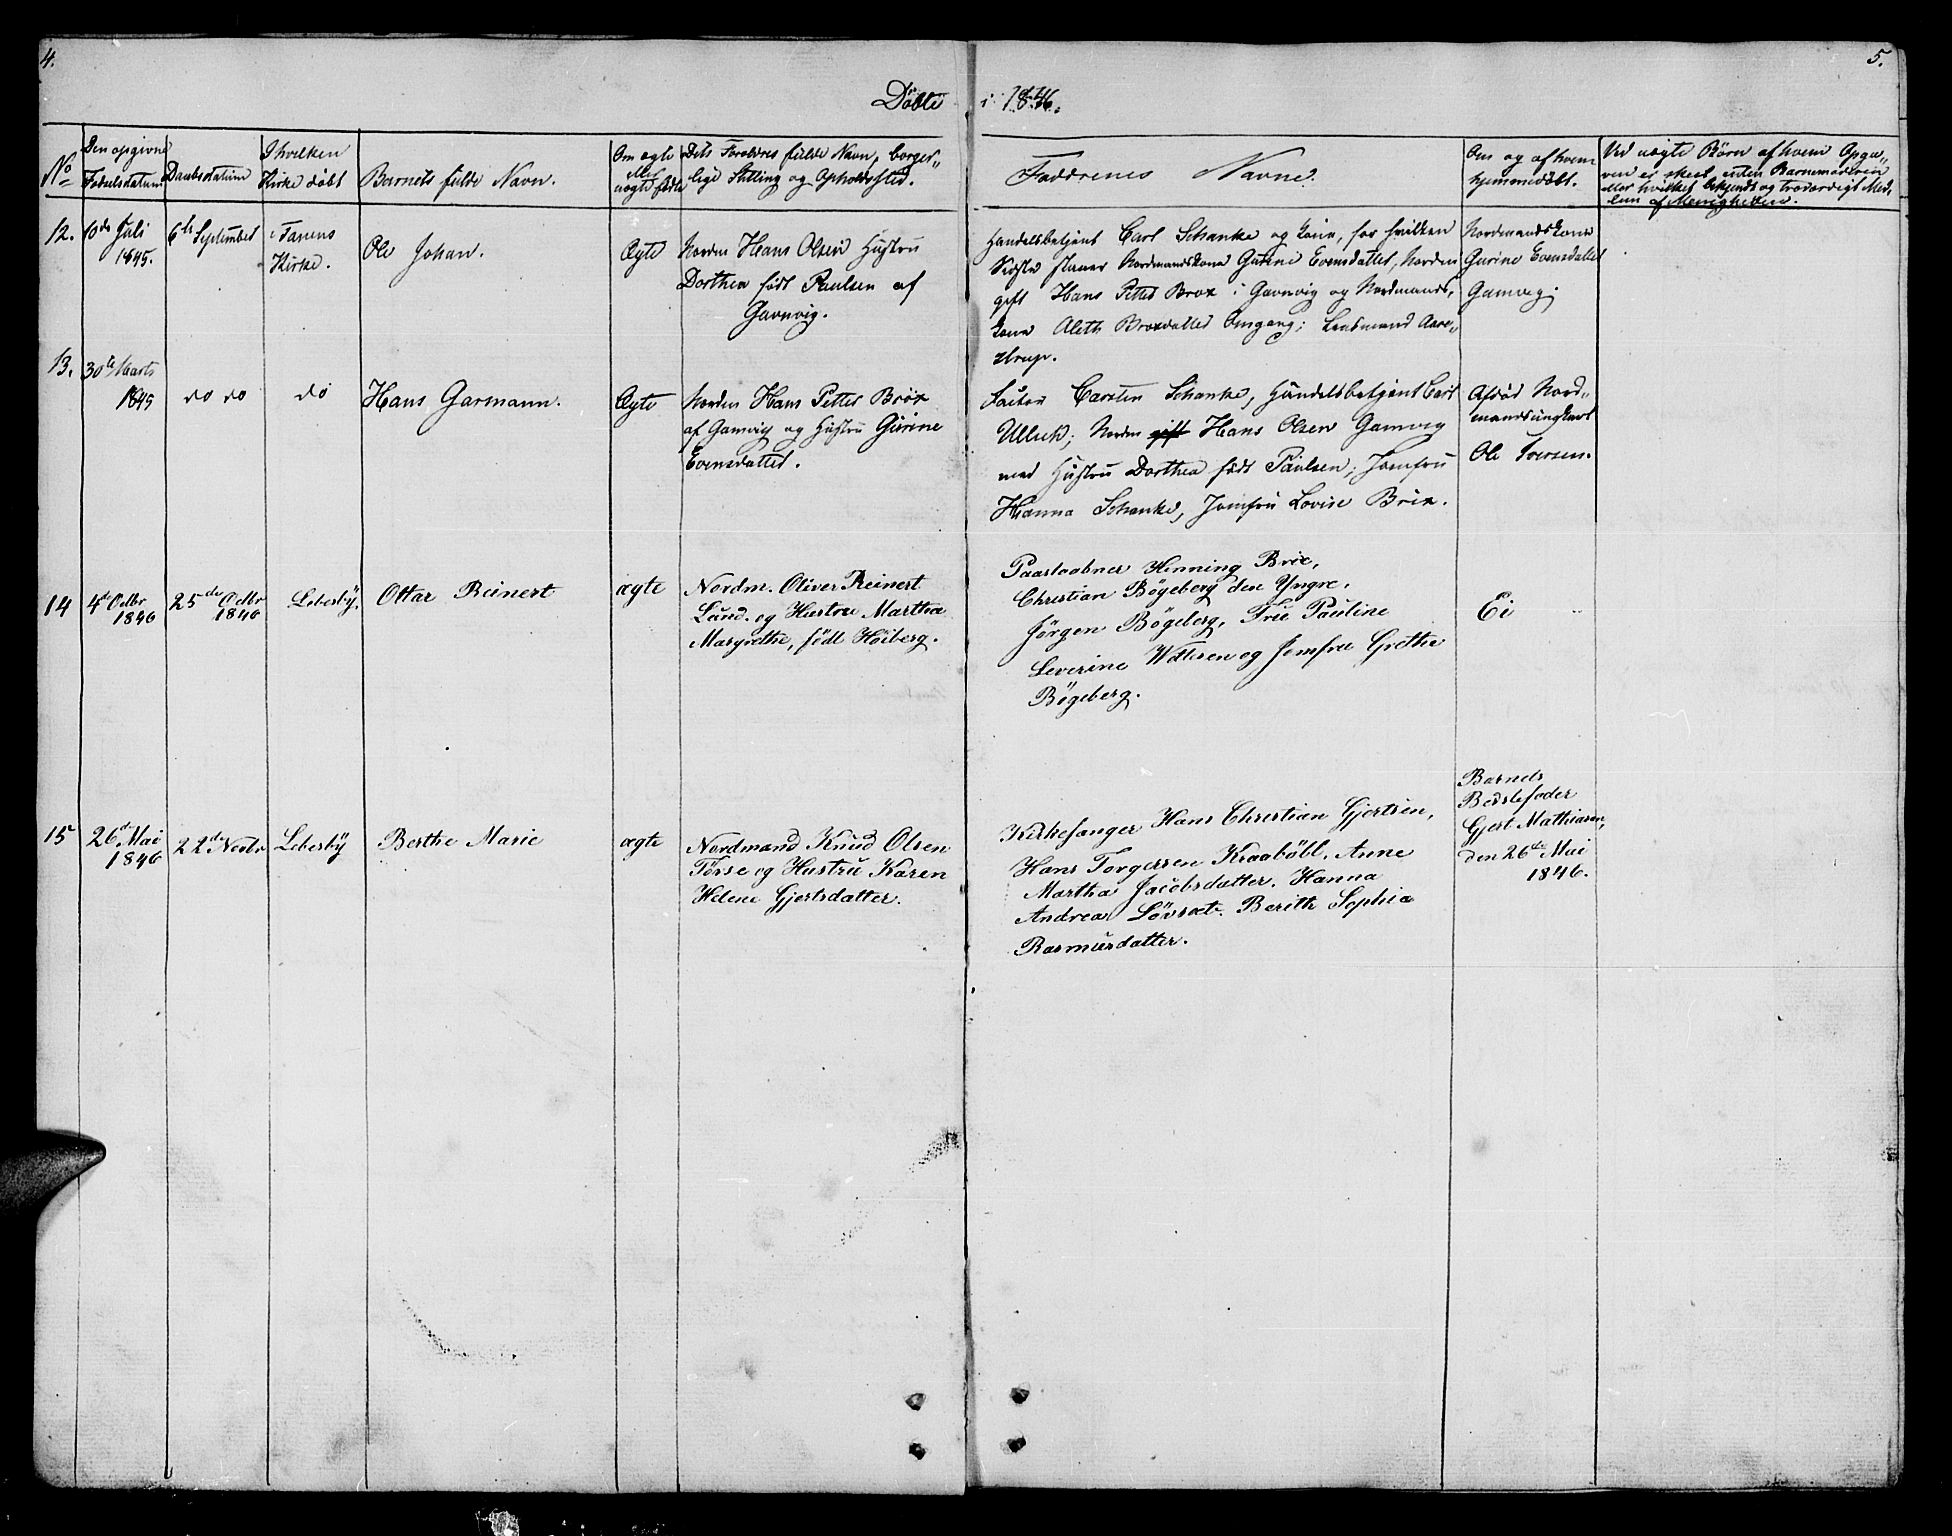 4.
5.
Döbte i 1846.
No
Den opgivne
Fødselsdatum
Daabsdatum
I hvilken
Kirke döbt
Barnets fulde Navn.
Om ægte
eller
uægte født
Dets Forældres fulde Navn, borger„
lige Stilling og Opholdssted.
Faddrenes Navne.
Om og af hvem
hjemmedøbt.
Ved uægte Børn af hvem Opga„
ven er skeet, enten Barnemoderen
eller hvilket bekjendt og troværdigt Med„
lem af Menigheden.
12.
10de Juli
1845.
6te September
i Tanens
Kirke.
Ole Johan.
Ægte
Norden Hans Olsen Hustru
Dorthea født Paulsen af
Gamvig.
Handelsbetjent Carl Schanke og Kone, for hvilken
Sidste staaer Nordmandskone Gurine Evensdatter, Norden
gift Hans Petter Brox i Gamvig og Nordmands„
kone Aleth Broxdatter Omgang; Lensmand Aare„
strup.
Nordmandskone
Gurine Evensdatter
Gamvig.
13.
30te Marts
1845
do do
do
Hans Garmann.
Ægte
Norden Hans Petter Brox
af Gamvig og Hustru Gurine
Evensdatter.
Factor Carsten Schanke, Handelsbetjent Carl
Ulleck; Norden gift Hans Olsen Gamvig
med Hustru Dorthea født Paulsen; Jomfru
Hanna Schanke, Jomfru Lovise Brix.
Afdød Nord„
mandsungkarl
Ole Iversen.
14
4de Octbr
1846
25de Octbr
1846
Lebesby.
Ottar Reinert
ægte
Nordm. Oliver Reinert
Lund. og Hustru Martha
Margrethe, født Höiberg.
Paastaabner Henning Brie,
Christian Bögeberg den Yngre,
Jörgen Bögeberg, Frue Pauline
Severine Wilesen og Jomfrue Grethe
Bögeberg.
Ei
15
26de Mai
1846
22de Novbr
Lebesby
Berthe Marie
ægte
Nordmand Knud Olsen
Torse og Hustru Karen
Helene Gjertsdatter.
Kirkesanger Hans Christian Gjertsen,
Hans Torgersen Kraaböbl. Anne
Martha Jacobsdatter. Hanna
Andrea Lövsæt. Berith Sophia
Rasmusdatter.
Barnets
Bedstefader
Gjert Mathiasen,
den 26de Mai
1846.